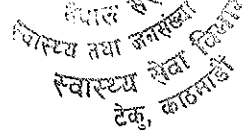 नेपाल स
स्वास्थ्य तथा जनसंख्या
स्वास्थ्य सेवा विभाग
टेकु, काठमाडौं